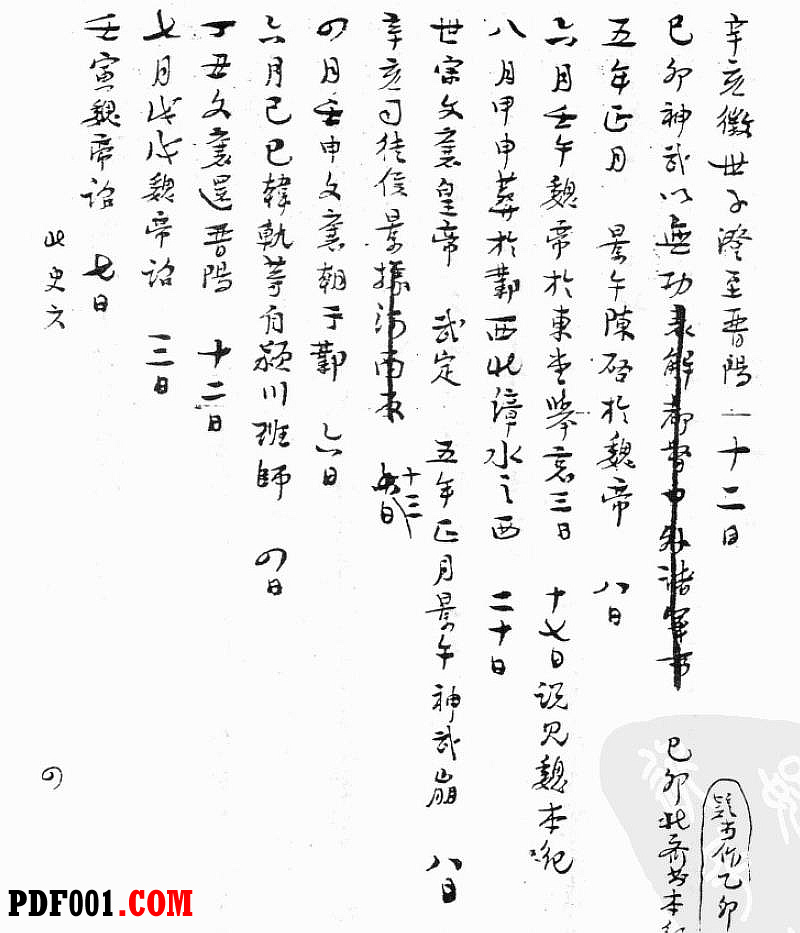 辛亥徵世子澄至晋陽 一十二日
巳卯神武以無功表解都督中外諸軍事 巳卯北齐书本紀
疑当作乙卯
五年正月 景午陳啓於魏帝 八日
六月壬午魏帝於東堂舉哀三日 十七日説見魏本紀
八月甲申葬於鄴西北漳水之西 二十日
世宗文襄皇帝 武定 五年正月景午神武崩 八日
辛亥司徒侯景據河南反 十三日
四月壬申文襄朝于鄴 六日
六月己巳韓軌等自潁川班師 四日
丁丑文襄還晋陽 十二日
七月戊戌魏帝詔 三日
壬寅魏帝詔 七日
北史六
四
PDF001.COM